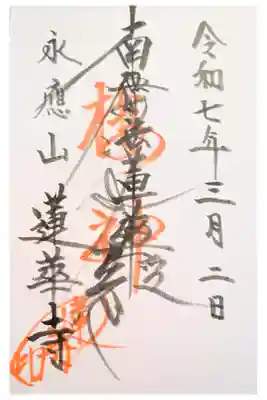 令和七年三月二日
南無妙法蓮華経
永應山 蓮華寺